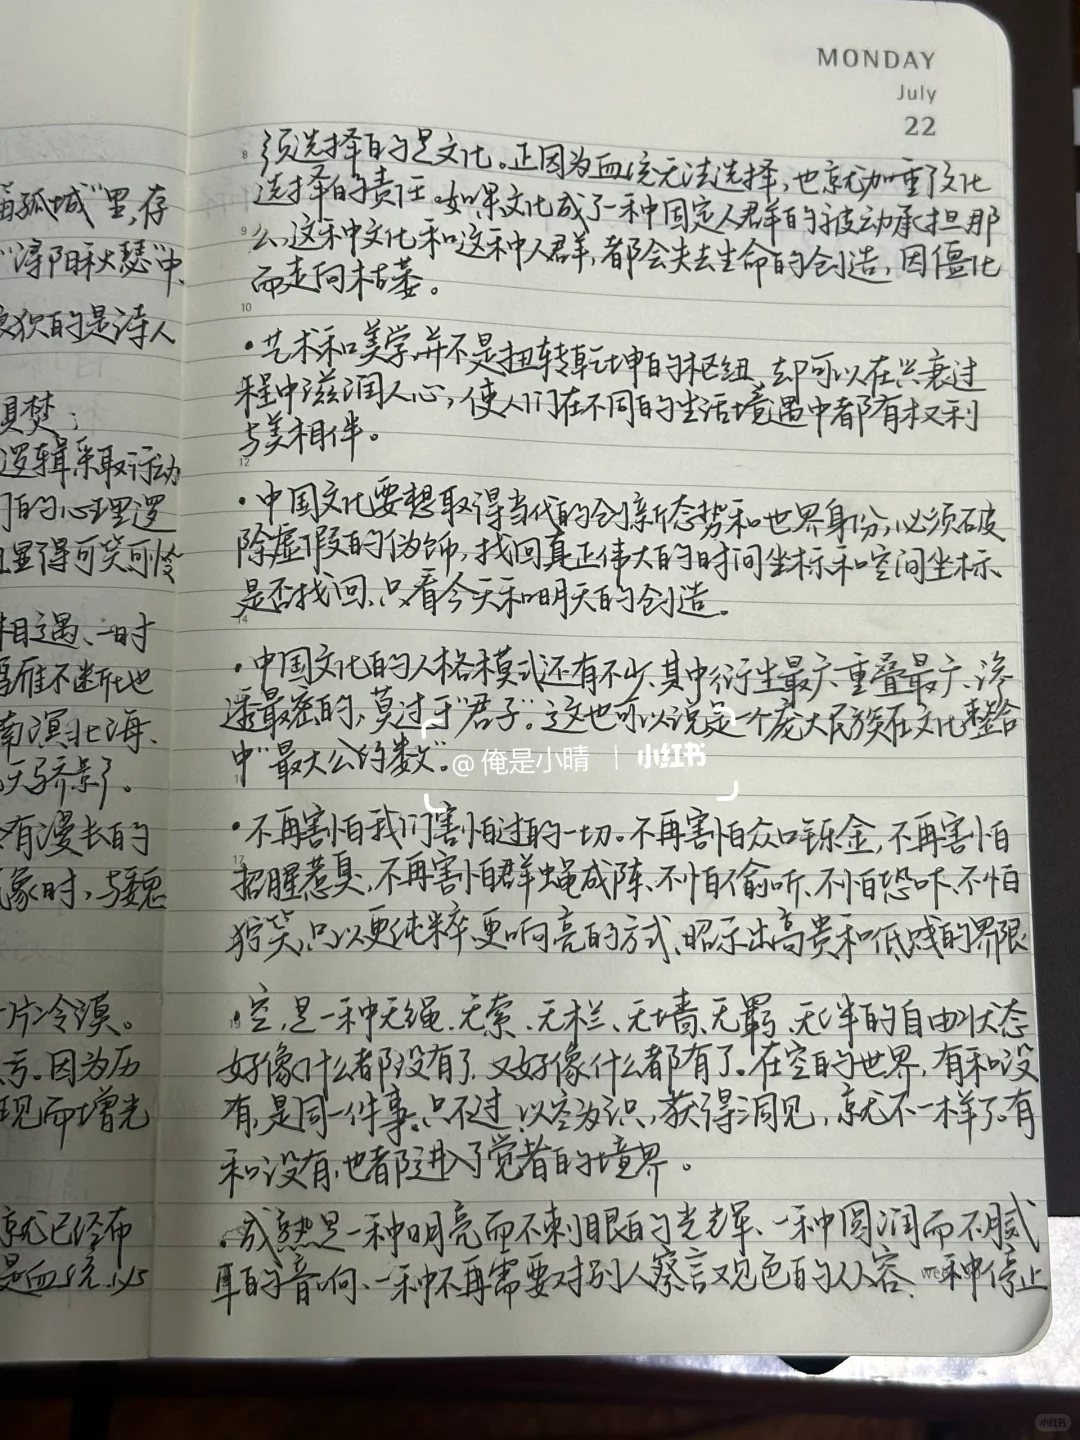 MONDAY
July
22
笛孤城"里,存
"浔阳秋瑟"中、
的是诗人
焚:
逻辑采取行动
们的心理逻
显得可笑可怜
相遇、一时
雁不断地
南溟北海、
天骄影了。
有漫长的
家时,与魏
片冷漠。
亏。因为历
现而增光
就已经布
是血统、必
8
须选择的是文化。正因为血统无法选择,也就加重了文化
选择的责任。如果文化成了一种固定人群的被动承担那
9
么、这种文化和这种人群,都会失去生命的创造,因僵化
而走向枯萎。
10
·艺术和美学,并不是扭转乾坤的枢纽、却可以在兴衰过
程中滋润人心,使人们在不同的生活境遇中都有权利
与美相伴。
12
·中国文化要想取得当代的创新态势和世界身份,必须破
除虚假的伪饰,找回真正伟大的时间坐标和空间坐标、
是否找回、只看今天和明天的创造。
14
·中国文化的人格模式还有不少、其中衍生最广、重叠最广、渗
透最密的,莫过于"君子"。这也可以说是一个庞大民族在文化整合
中"最大公约数"。
16
@俺是小晴 | 小红书
·不再害怕我们害怕过的一切。不再害怕众口铄金,不再害怕
17
招腥惹臭、不再害怕群蝇成阵、不怕偷听、不怕恐吓、不怕
狞笑,只以更纯粹、更响亮的方式、昭示出高贵和低贱的界限
·空,是一种无绳、无索、无栏、无墙、无羁、无绊的自由状态
好像什么都没有了,又好像什么都有了。在空的世界,有和没
有,是同一件事。只不过、以空为识,获得洞见,就不一样了。有
和没有,也都进入了觉者的境界。
·成熟是一种明亮而不刺眼的光辉、一种圆润而不腻
耳的音响、一种不再需要对别人察言观色的从容、一种停止
小红书